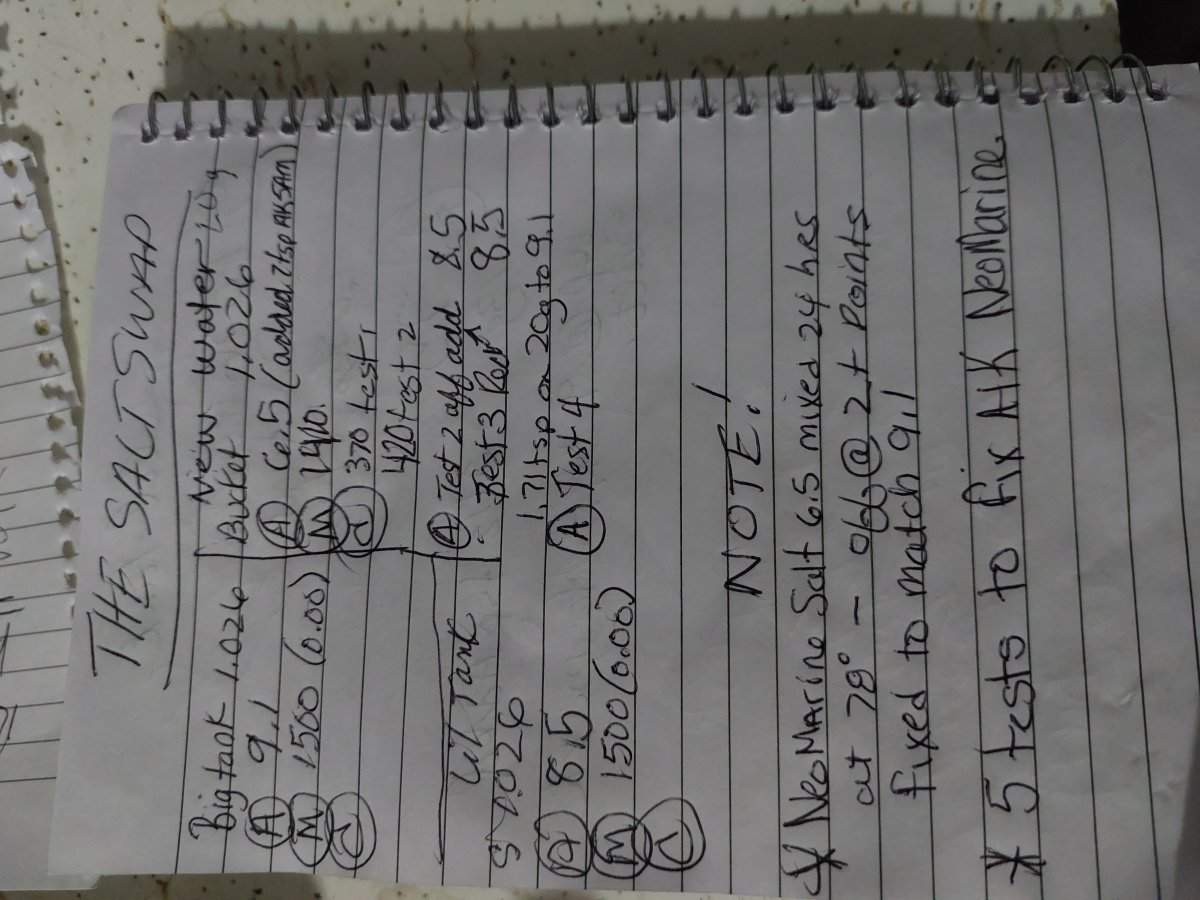 THE SALT SWAP
Big tank 1.026
(A) 9.1
(M) 1500 (0.00)
(C)
New water 20g
Bucket 1.026
(A) 6.5 (added 2tsp AKSAM)
(M) 1410.
(C) 370 test 1
420 test 2
(A) Test 2 aff add 8.5
Test 3 8.5
1.71 tsp on 20g to 9.1
(A) Test 4
Lil Tank
S 1.026
(A) 8.5
(M) 1500 (0.00)
(C)
NOTE!
* NeoMarine Salt 6.5 mixed 24 hrs
at 78° - @ 2+ Points
fixed to match 9.1
* 5 tests to fix AlK NeoMarine.